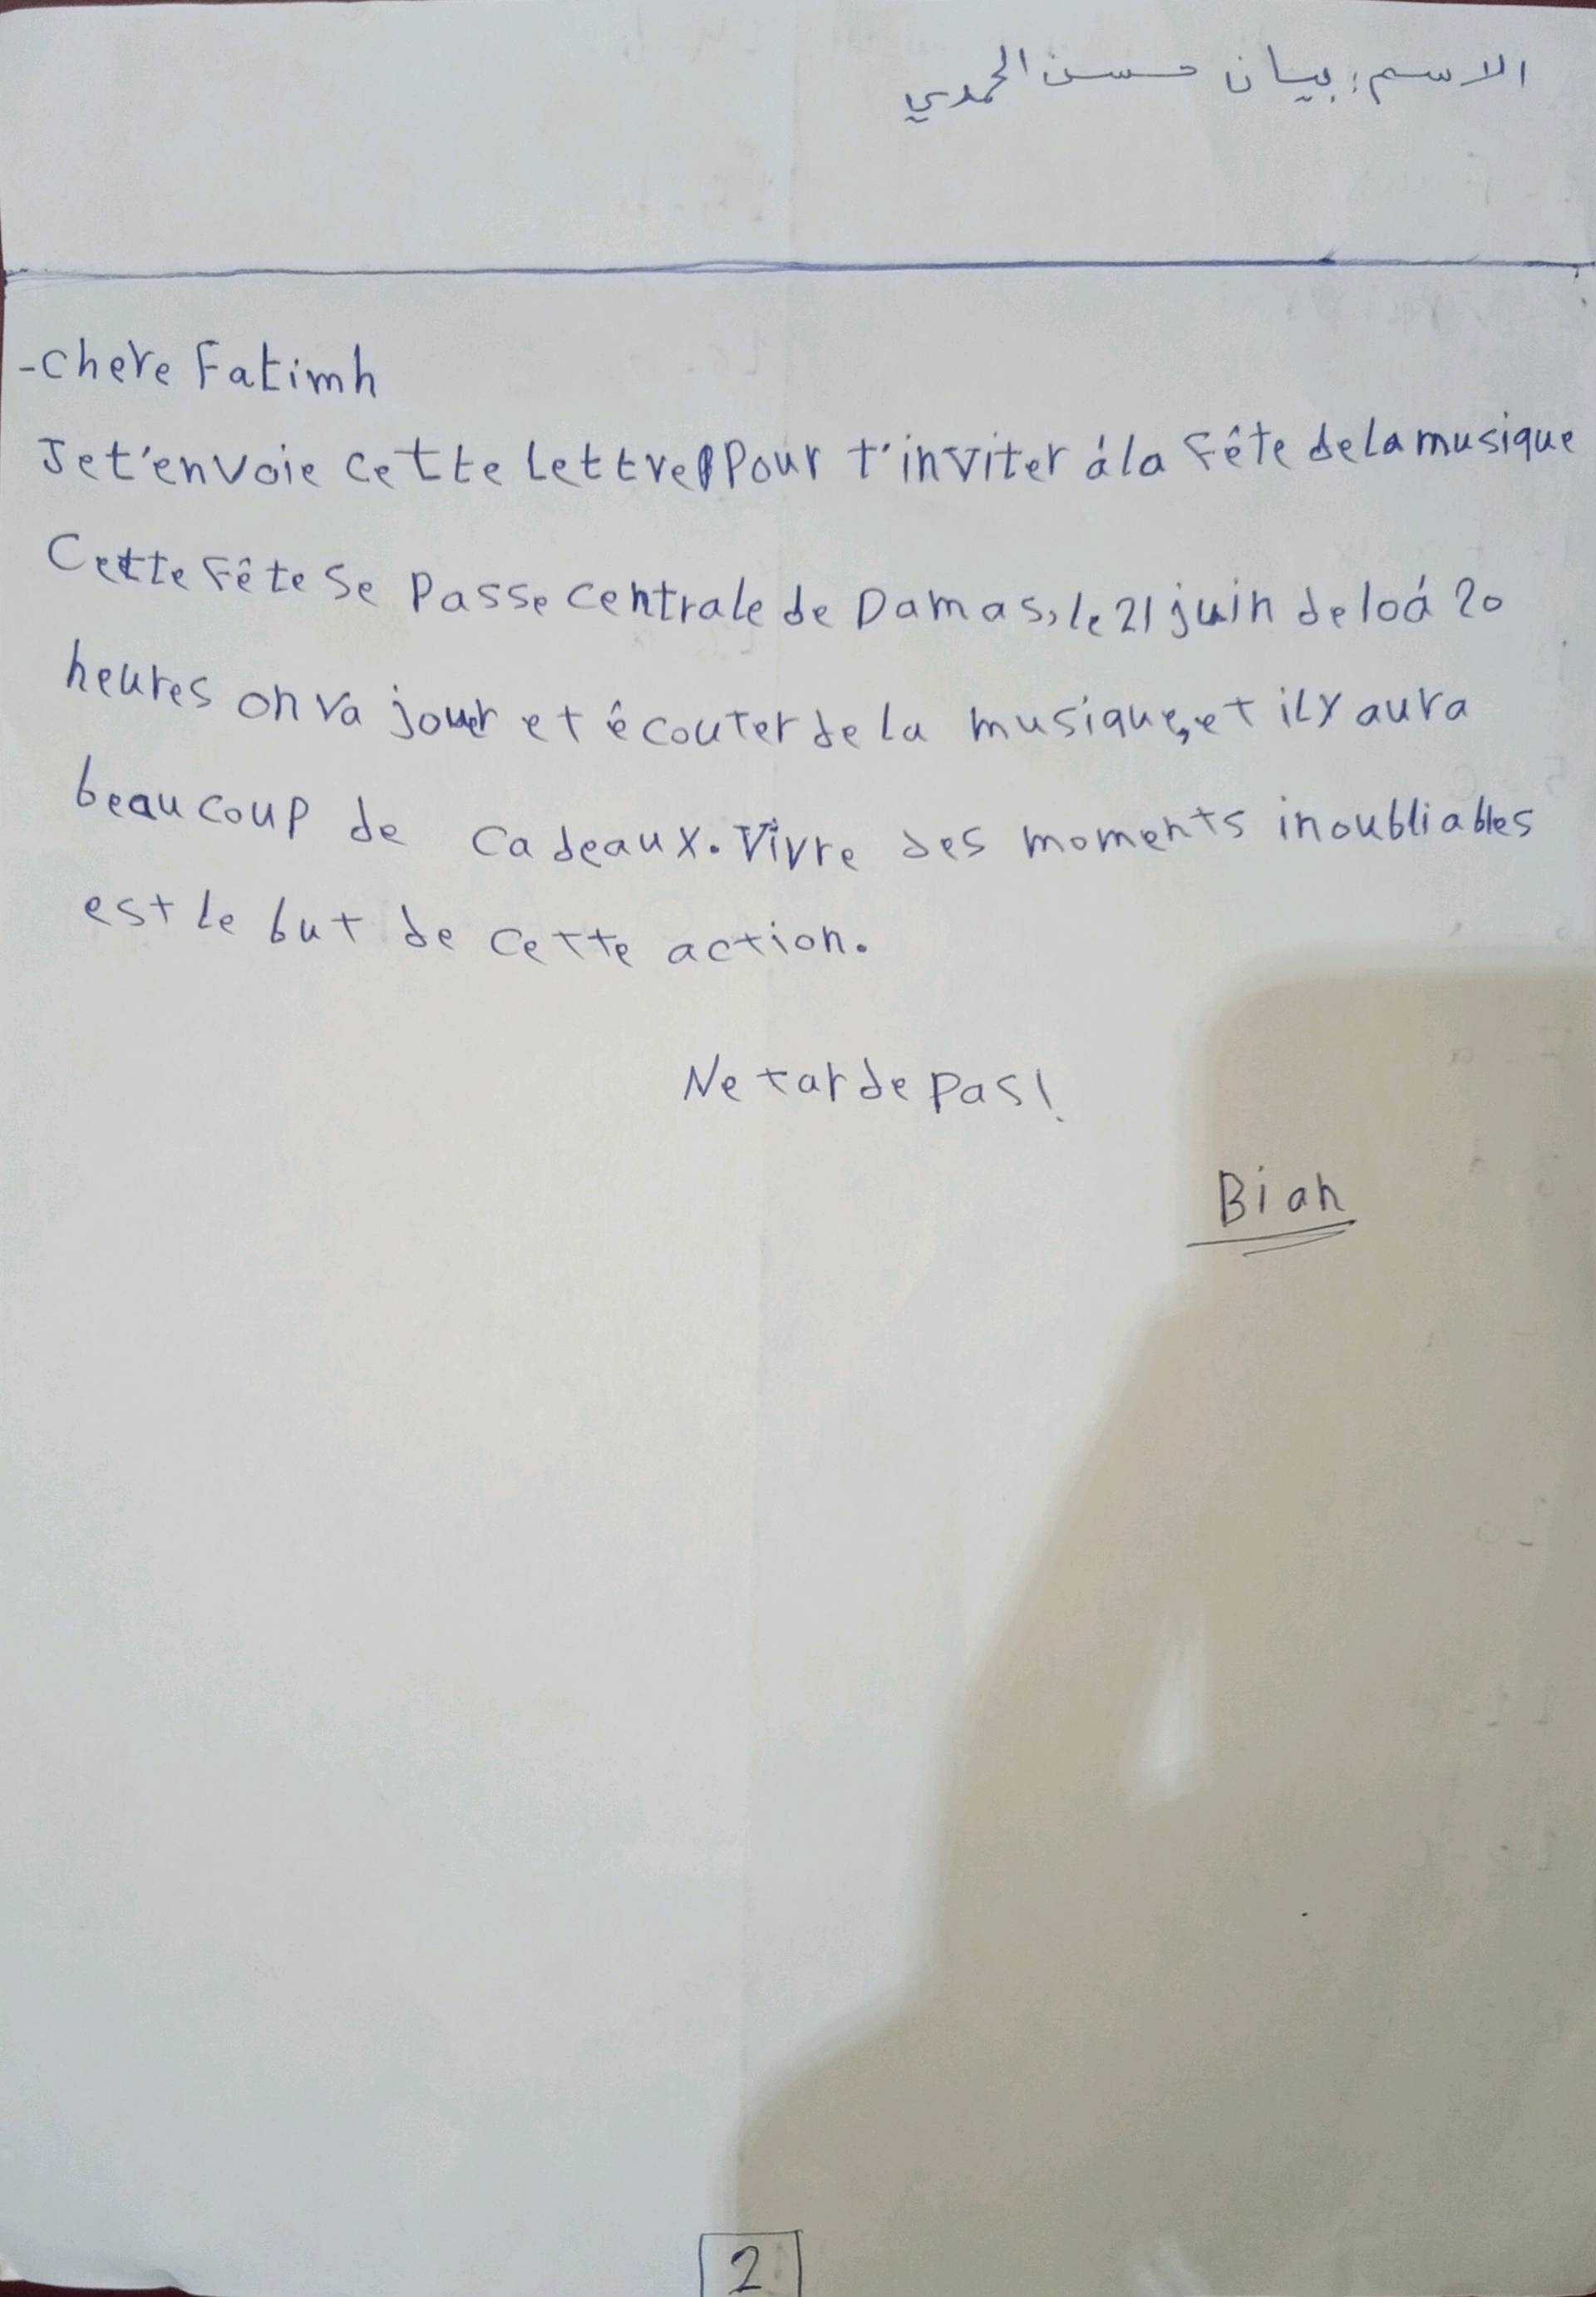 الاسم: بيان حسن الحمدي
-chere Fatimh
Je t'envoie cette lettre pour t'inviter á la Fête de la musique
Cette Fête se Passe centrale de Damas, le 21 juin de 10 á 20
heures on va jouer et écouter de la musique, et il y aura
beaucoup de cadeaux. Vivre des moments inoubliables
est le but de cette action.
Ne tarde pas!
Bian
2